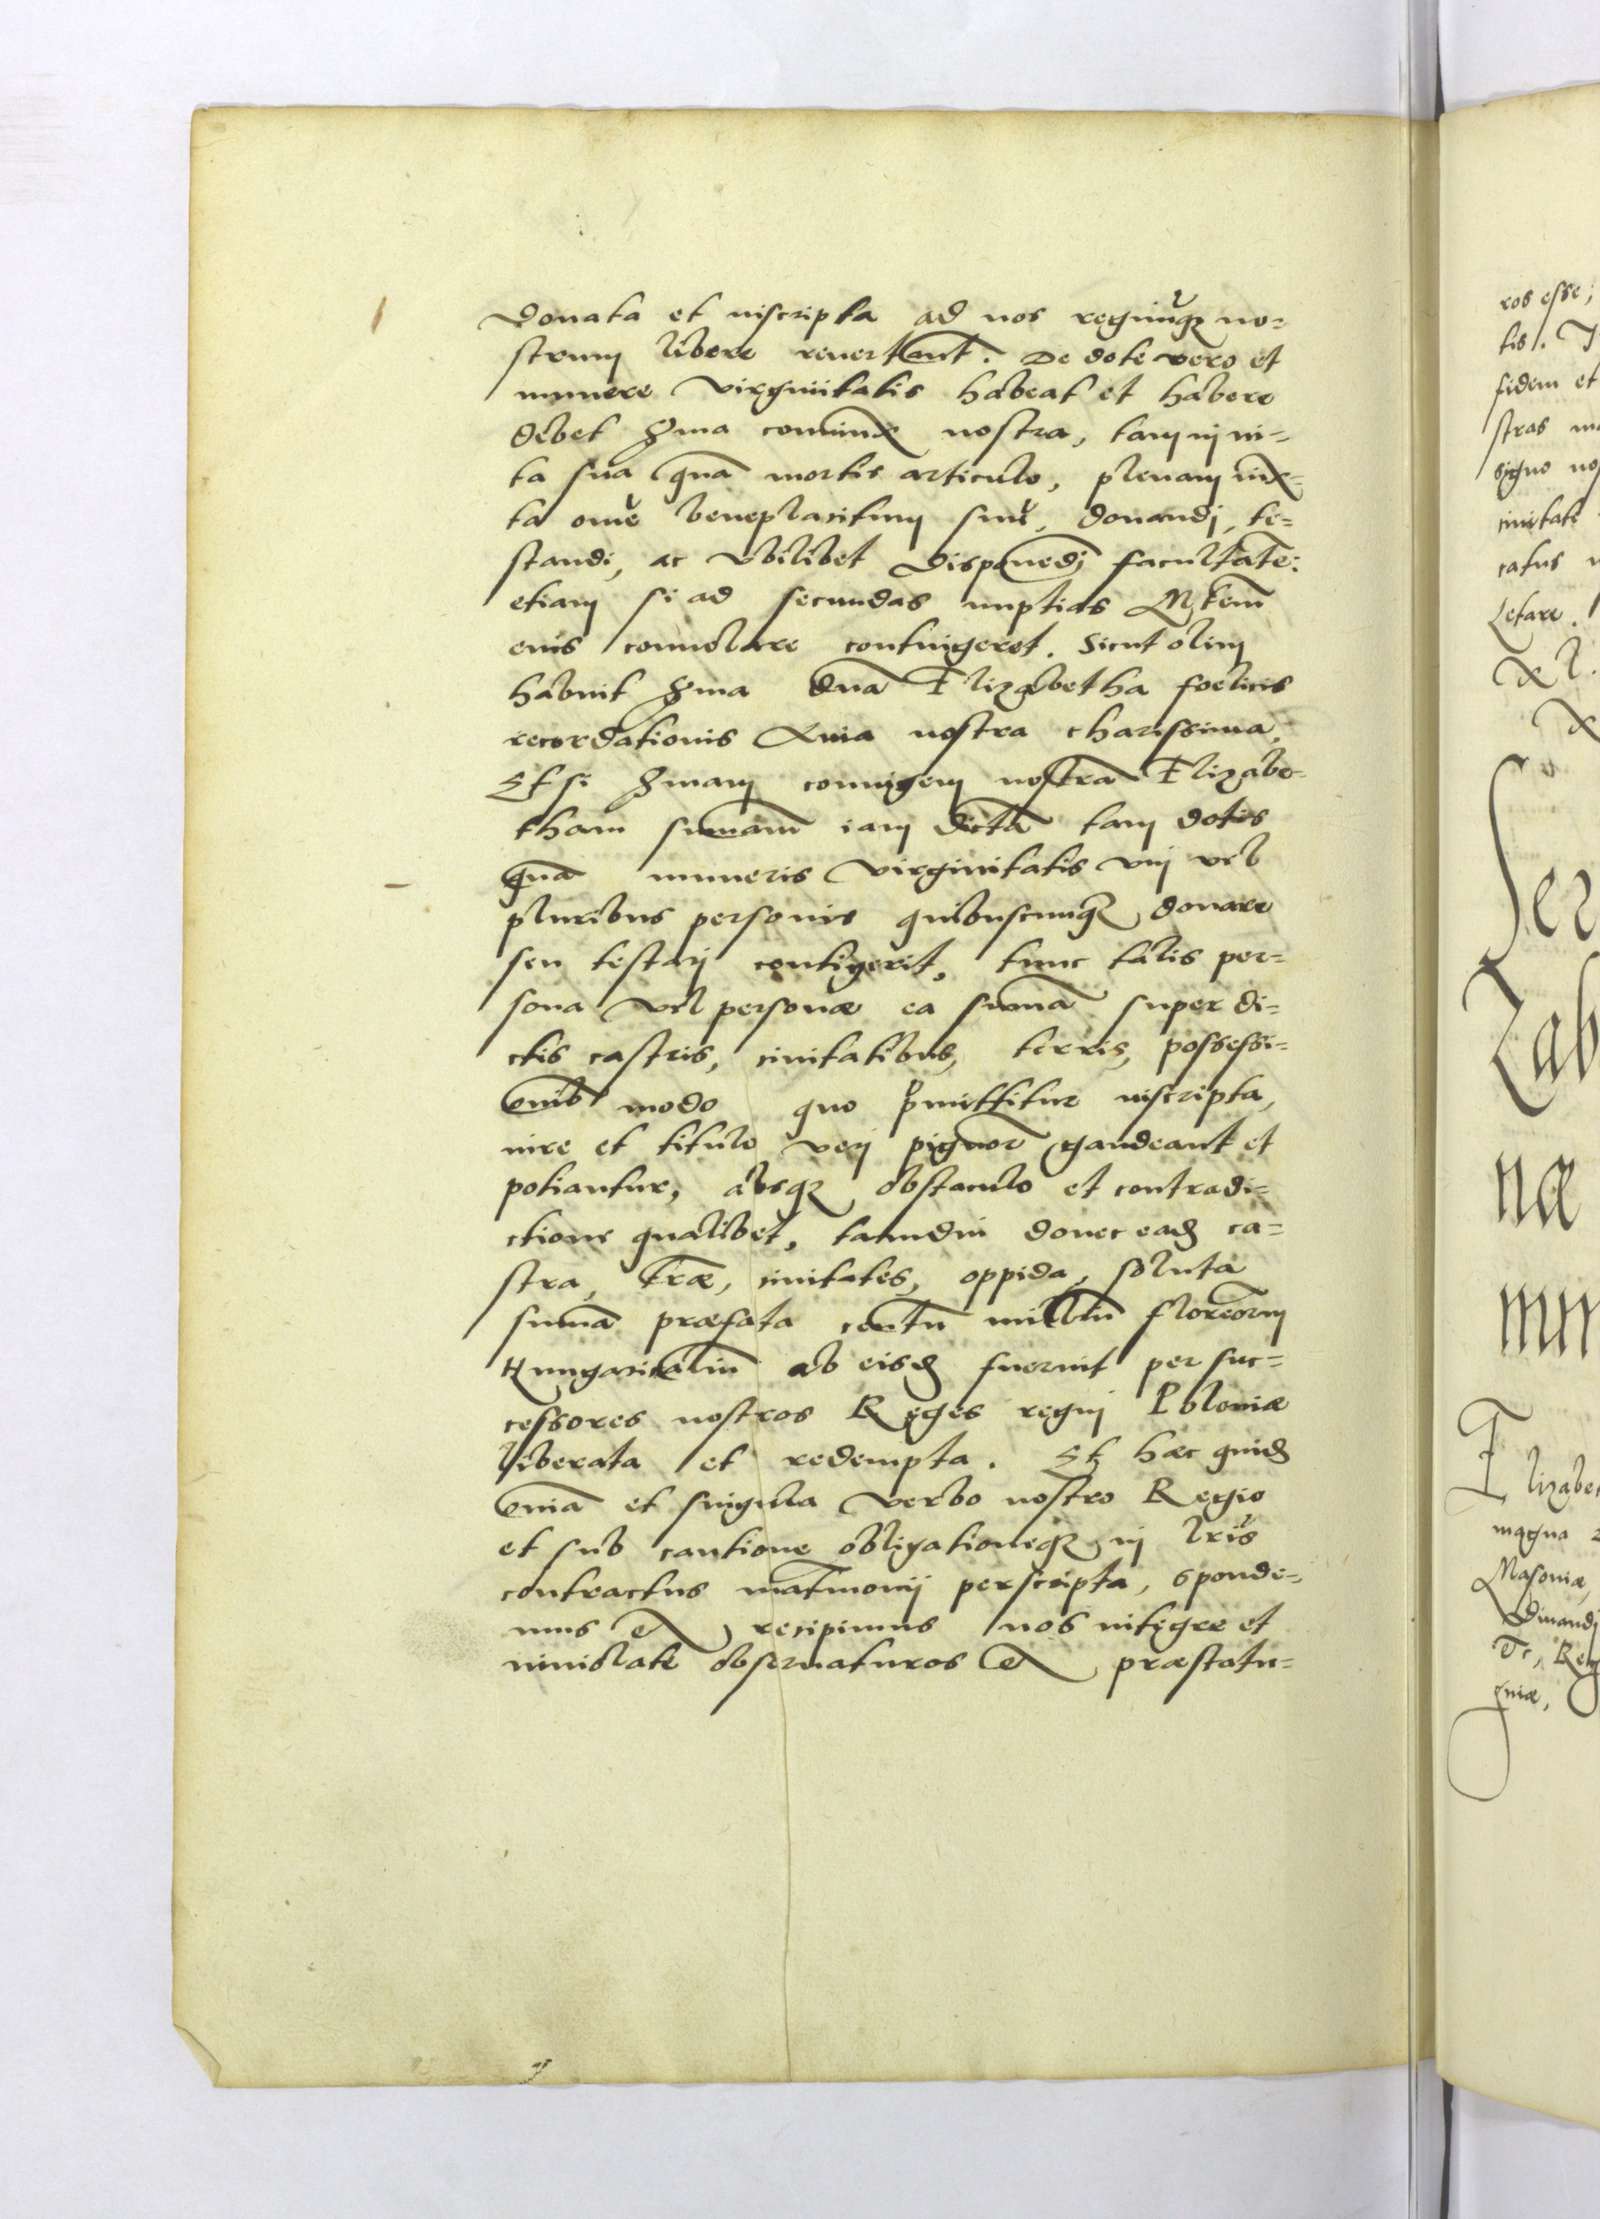 donata et inscripta ad nos regnūq₃ no=
strum libere reuertant. De dote vero et
munere virginitatis habeat et habere
debet Sma coniunx nostra, tam in vi=
ta sua quā mortis articulo, plenam iux=
ta omē beneplacitum suū, donandi, te=
standi, ac vbilibet disponēdi facultatē:
etiam si ad secundas nuptias Mtem
eius conuolare contingeret. Sicut olim
habuit Sma dna Elizabetha foelicis
recordationis Auia nostra charissima.
Et si Smam coniugem nostrā Elizabe=
tham sumam iam dictā tam dotis
quā muneris virginitatis vni vel
pluribus personis quibuscunq₃ donare
seu testari contigerit, tunc talis per=
sona vel personæ ea sumā super di=
ctis castris, ciuitatibus, terris, possessi=
onib modo quo pmittitur inscripta,
iure et titulo veri pignor gaudeant et
potiantur, absq₃ obstaculo et contradi=
ctione qualibet, tamdiu donec ead ca=
stra, træ, ciuitates, oppida, soluta
sumā præfata centū milliū floreorum
Hungaricaliū ab eisd fuerint per suc=
cessores nostros Reges regni Poloniæ
liberata et redempta. Et hæc quid
omia et singula verbo nostro Regio
et sub cautione obligationeq₃ in lris
contractus matmonij perscripta, sponde=
mus & recipimus nos integre et
inuiolate obseruaturos & præstatu=
ros esse;
tis. I
fidem et
stras ma
signo nos
ciuitate
catus
Letare.
Ser
Zab
næ
Elizabet
magna
Masoniæ,
Dinandi